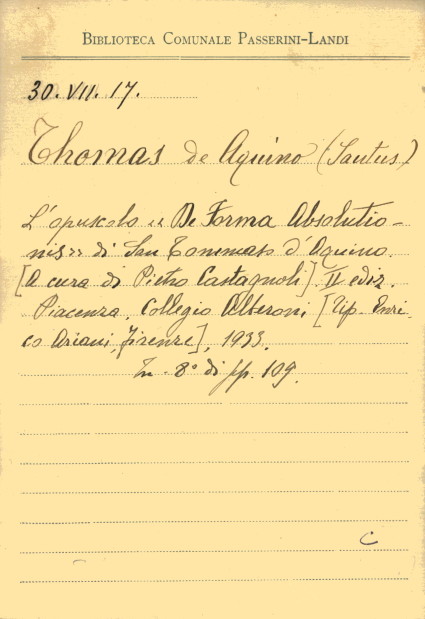 BIBLIOTECA COMUNALE PASSERINI-LANDI
30. VII. 17.
Thomas de Aquino (Santus)
L'opuscolo « De Forma Absolutio-
nis» di San Tommaso d'Aquino.
[A cura di Pietro Castagnoli]. II ediz.
Piacenza, Collegio Alberoni [Tip. Enri-
co Ariani, Firenze], 1933.
In-8° di pp. 109.
C